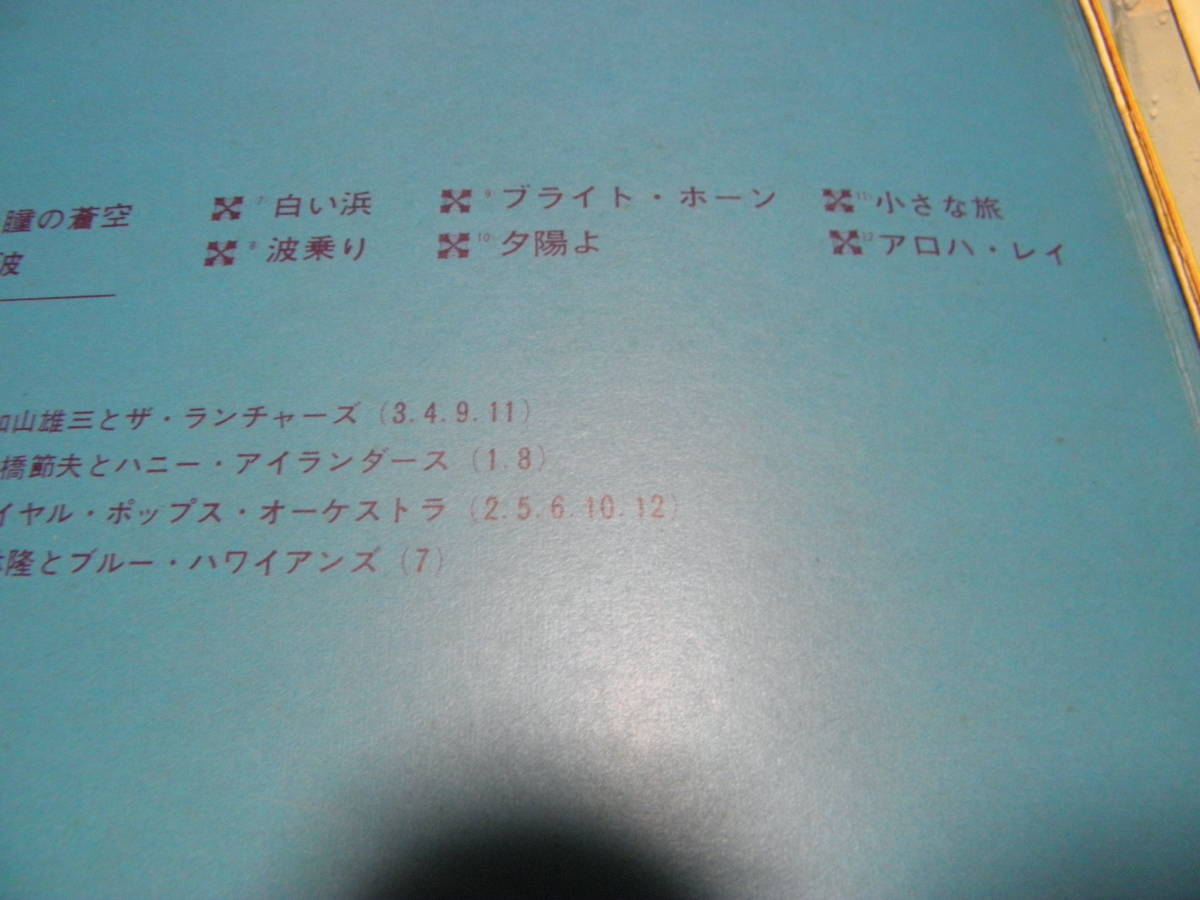 瞳の蒼空 7 白い浜 9 ブライト・ホーン 11 小さな旅
波 8 波乗り 10 夕陽よ 12 アロハ・レイ
加山雄三とザ・ランチャーズ (3.4.9.11)
橋節夫とハニー・アイランダース (1.8)
イヤル・ポップス・オーケストラ (2.5.6.10.12)
隆とブルー・ハワイアンズ (7)